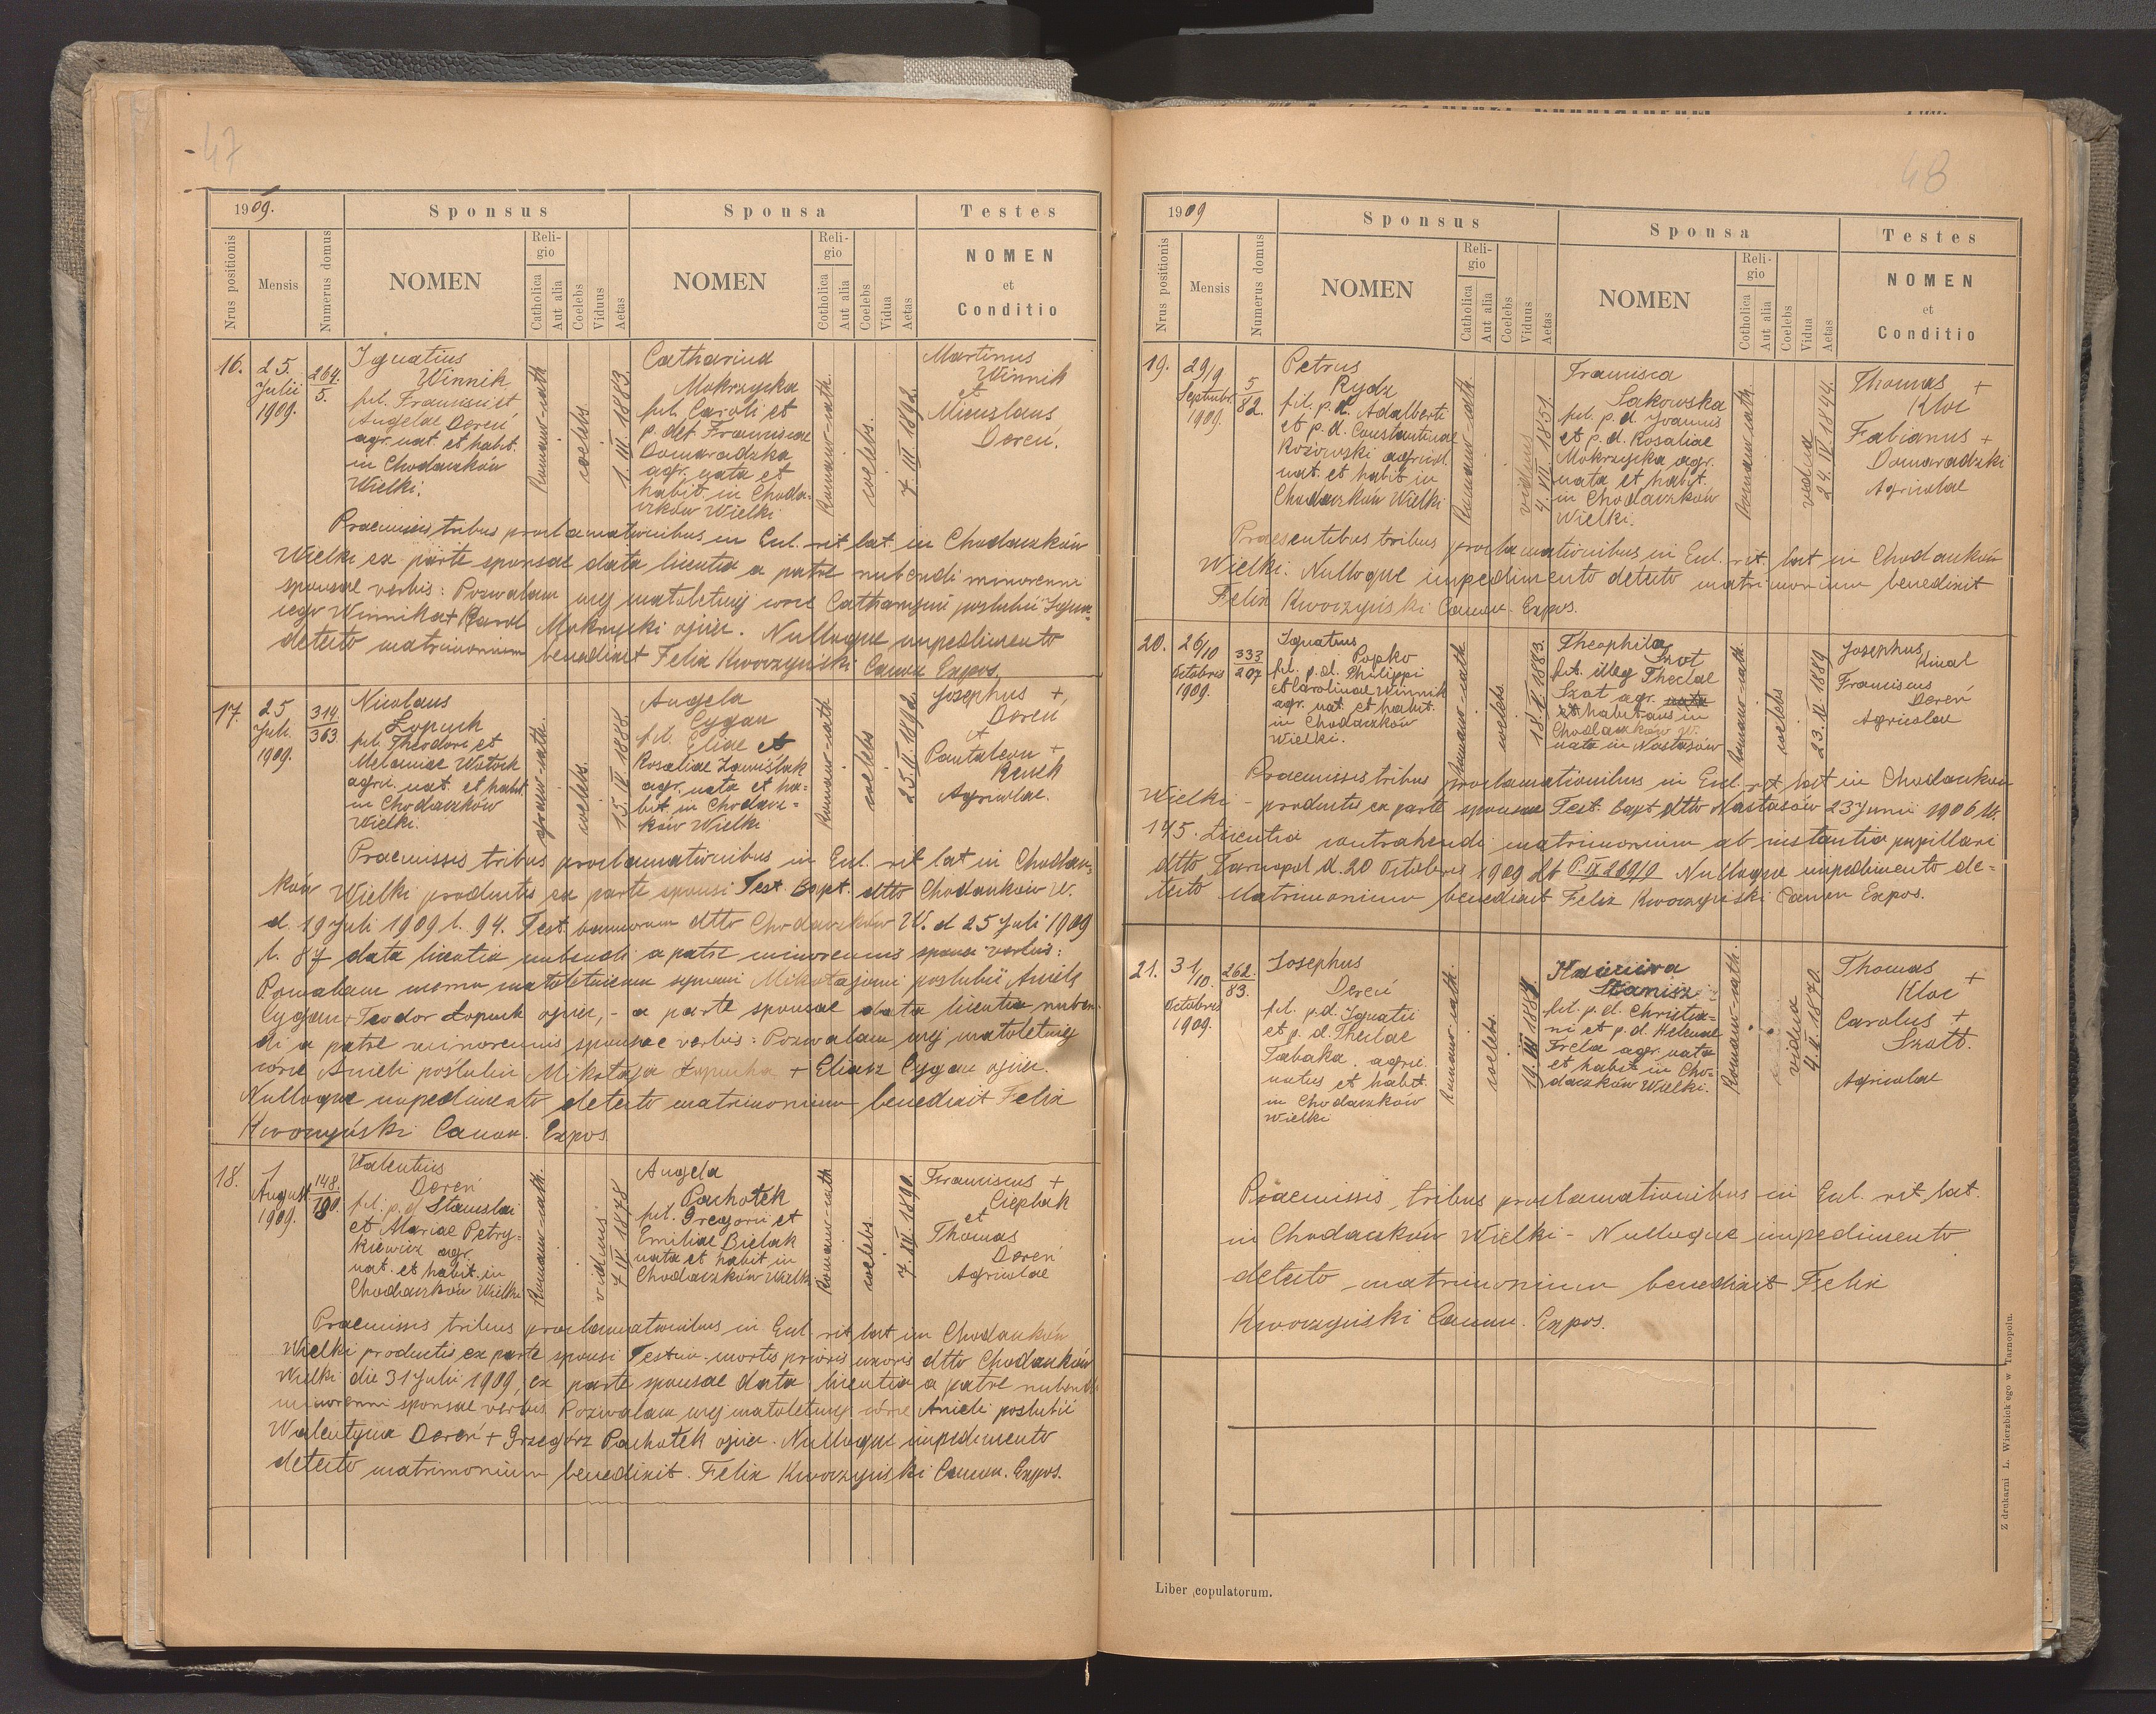 47
1909.
Sponsus
Sponsa
Testes
Nrus positionis
Mensis
Numerus domus
NOMEN
Religio
Catholica
Aut alia
Coelebs
Viduus
Aetas
NOMEN
Religio
Catholica
Aut alia
Coelebs
Vidua
Aetas
NOMEN
et
Conditio
16.
25.
Julii
1909.
264.
5.
Ignatius
Winnik
fil. Francisci et
Angelae Dereń
agr. nat. et habit.
in Chodaczków
Wielki.
Romano-cath
coelebs.
1. III. 1883.
Catharina
Mokrzycka
fil. Caroli et
p. def Franciscae
Domaradzka
agr. nata et
habit. in Choda-
czków Wielki
Romano-cath.
coelebs.
7. III 1892.
Martinus
Winnik
et
Miecislaus
Dereń.
Praemissis tribus proclamationibus in Eccl. rit lat. in Chodaczków
Wielki ex parte sponsae data licentia a patre nubendi minorenni
sponsae verbis: Pozwalam mej małoletniej córce Catharzynie poślubić Igna-
cego Winnika + Karol Mokrzycki ojciec. Nulloque impedimento
detecto matrimonium benedixit Felix Kworzyński Canon Expos.
17.
25
Juli.
1909.
314.
363.
Nicolaus
Łopuch
fil. Theodori et
Melaniae Wotoch
agric. nat. et habit.
in Chodaczków
Wielki.
graeco-cath.
coelebs.
15. IV 1888.
Angela
Cygan
fil. Eliae et
Rosaliae Zawiślak
agr. nata et ha-
bit in Chodacz-
ków Wielki
Romano-cath
coelebs
25. II. 1892.
Josephus +
Dereń
et
Pantaleon +
Renek
Agricolae.
Praemissis tribus proclamationibus in Eccl. rit lat in Chodacz-
ków Wielki productis ex parte sponsi Test. Bapt. dtto Chodaczków W.
d. 19 Juli 1909 l. 94. Test. bannorum dtto Chodaczków W. d 25 Juli 1909
l. 87 data licentia nubendi a patre minorennis sponsi verbis:
Pozwalam memu małoletniemu synowi Mikołajowi poślubić Anielę
Cygan + Teodor Łopuch ojciec, - a parte sponsae data licentia nuben-
di a patre minorennis sponsae verbis: Pozwalam mej małoletniej
córce Anieli poślubić Mikołaja Łopucha + Eliasz Cygan ojciec.
Nulloque impedimento detecto matrimonium benedixit Felix
Kworzyński Canon. Expos.
18.
1
August.
1909.
148.
180.
Valentius
Dereń
fil. p. d Stanislai
et Mariae Petry-
kiewicz agr.
nat. et habit. in
Chodaczków Wielki
Romano-cath.
viduus
7 IV. 1878
Angela
Pachołek
fil. Gregorii et
Emiliae Bielak
nata et habit in
Chodaczków Wielki
Romano-cath
coelebs.
7. XII. 1890.
Franciscus +
Cieplak
et
Thomas
Dereń
Agricolae
Praemissis tribus proclamationibus in Eccl. rit lat in Chodaczków
Wielki productis ex parte sponsi Testim. mortis prioris uxoris dtto Chodaczków
Wielki die 31 Julii 1909, ex parte sponsae data licentia a patre nubendi
minorenni sponsae verbis Pozwalam mej małoletniej córce Anieli poślubić
Walentyna Dereń + Grzegórz Pachołek ojciec. Nulloque impedimento
detecto matrimonium benedixit. Felix Kworzyński Canon. Expos.
48
1909
Sponsus
Sponsa
Testes
Nrus positionis
Mensis
Numerus domus
NOMEN
Religio
Catholica
Aut alia
Coelebs
Viduus
Aetas
NOMEN
Religio
Catholica
Aut alia
Coelebs
Vidua
Aetas
NOMEN
et
Conditio
19.
29/9
Septembr.
1909.
5
82.
Petrus
Rydz
fil. p. d. Adalberti
et p. d. Constantinae
Kozowski agricol.
nat. et habit in
Chodaczków Wielki
Romano-cath.
viduus
4. VII. 1851.
Francisca
Sakowska
fil. p. d. Joannis
et p. d. Rosaliae
Mokrzycka agr.
nata et habit.
in Chodaczków
Wielki.
Romano-cath.
vidua
24. IV. 1844.
Thomas +
Kloc
Fabianus +
Domaradzki
Agricolae
Praesentibus tribus proclamationibus in Eccl. rit. lat in Chodaczków
Wielki. Nulloque impedimento detecto matrimonium benedixit
Felix Kworzyński Canon. Expos.
20.
26/10
Octobris
1909.
333
207
Ignatius
Popko
fil. p. d. Philippi
et Carolinae Winnik
agr. nat. et habit.
in Chodaczków
Wielki.
Romano-cath
coelebs.
18. V. 1883.
Theophila
Szot
fil. illeg Theclae
Szot agr. nata
et habitans in
Chodaczków W.
nata in Nastasów
Romano-cath.
coelebs
23. XI. 1889
Josephus
Kinal
Franciscus
Dereń
Agricolae
Praemissis tribus proclamationibus in Eccl. rit lat in Chodaczków
Wielki - productis ex parte sponsae Test. Bapt dtto Nastasów 23 Junii 1906 N.
145. Licentia contrahendi matrimonium ab instantia pupillari
dtto Tarnopol d. 20 Octobris 1909 Lb P. IX 209/9 Nulloque impedimento de-
tecto Matrimonium benedixit Felix Kworzyński Canon Expos.
21.
31/10.
Octobris
1909.
262.
83.
Josephus
Dereń
fil. p. d. Ignatii
et p. d. Theclae
Tabaka agric.
natus et habit.
in Chodaczków
Wielki
Romano-cath.
coelebs.
19. III 1884
Stanisz
fil. p. d. Christia-
ni et p. d. Helenae
Freta agr. nata
et habit in Cho-
daczków Wielki.
Romano-cath.
vidua
4. II. 1870.
Thomas +
Kloc
Carolus +
Szott.
Agricolae
Praemissis tribus proclamationibus in Eccl. rit. lat.
in Chodaczków Wielki - Nulloque impedimento
detecto matrimonium benedixit Felix
Kworzyński Canon. Expos.
Liber copulatorum.
Z drukarni L. Wierzbick'ego w Tarnopolu.